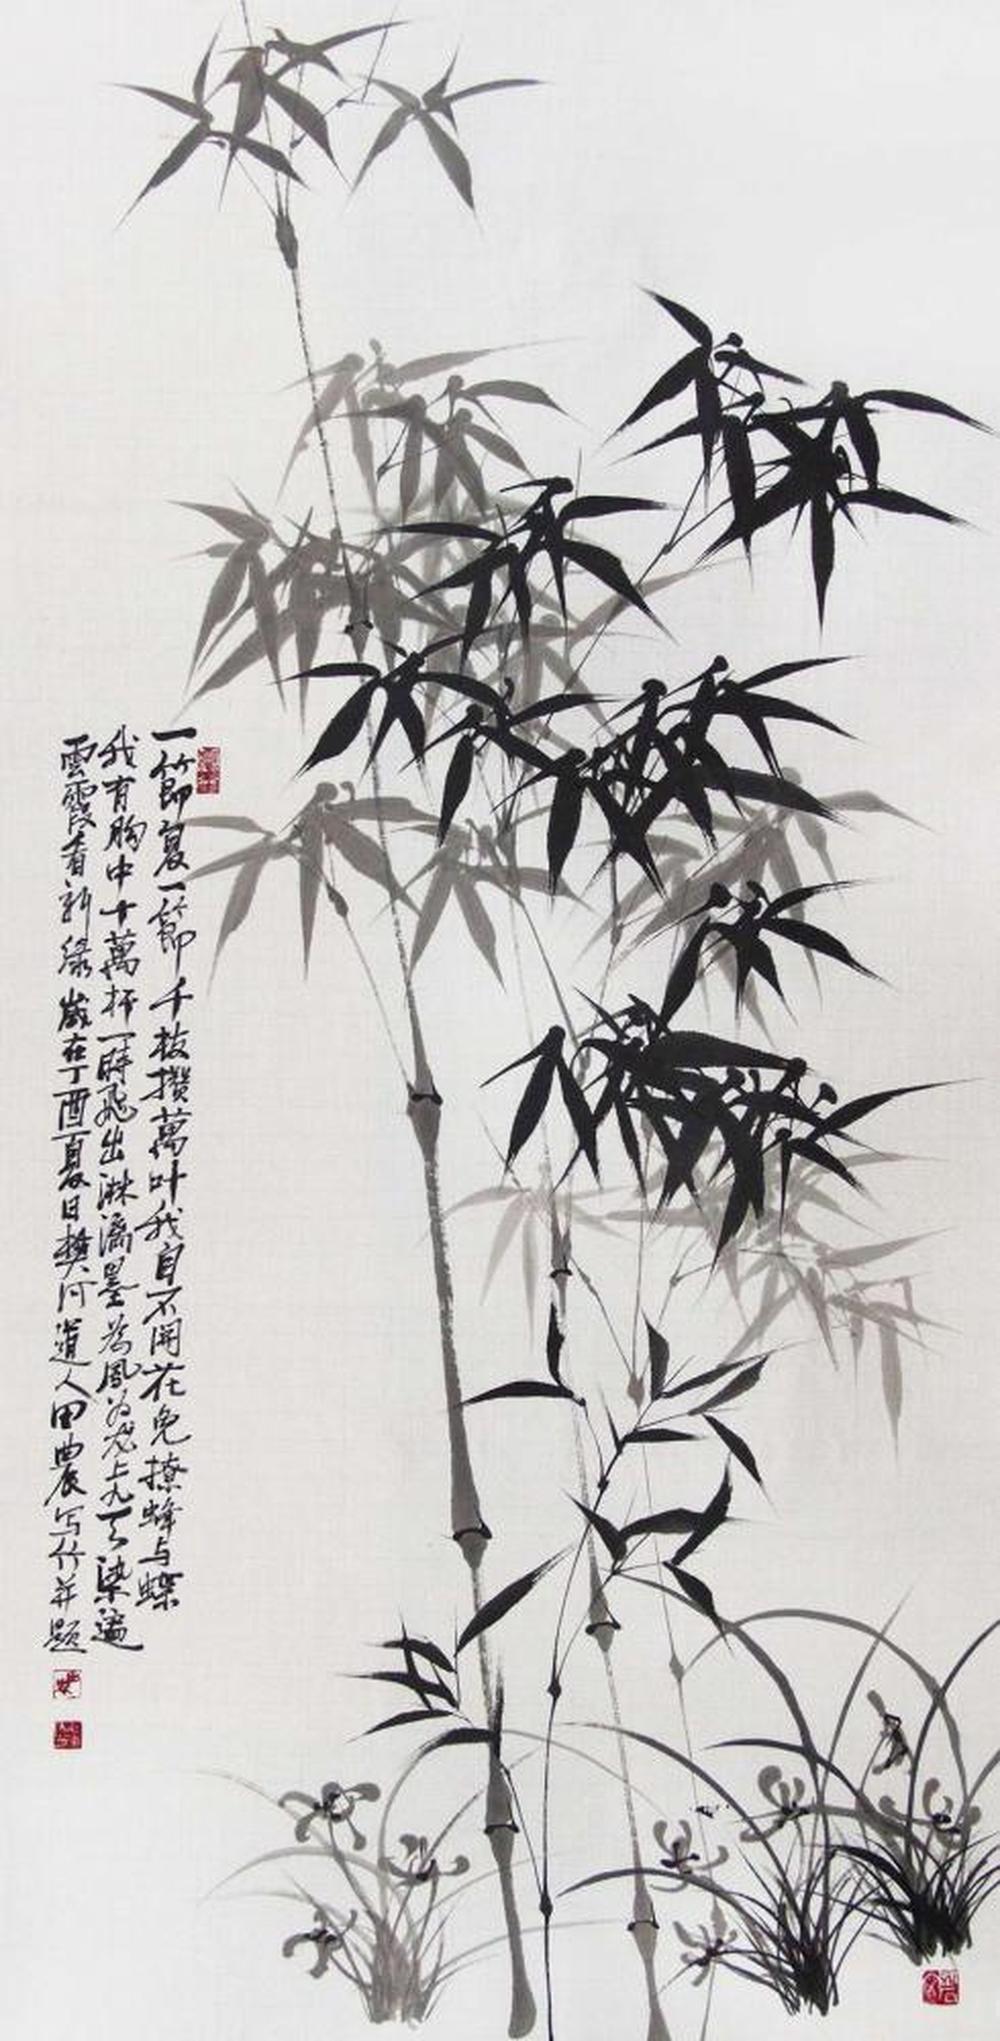 一節复一節千枝攢萬叶我自不開花免撩蜂与蝶
我有胸中十萬杯一時飛出淋漓墨为鳳为龙上九天染遍
雲霞看新绿歲在丁酉夏日樊河道人田農写竹并题